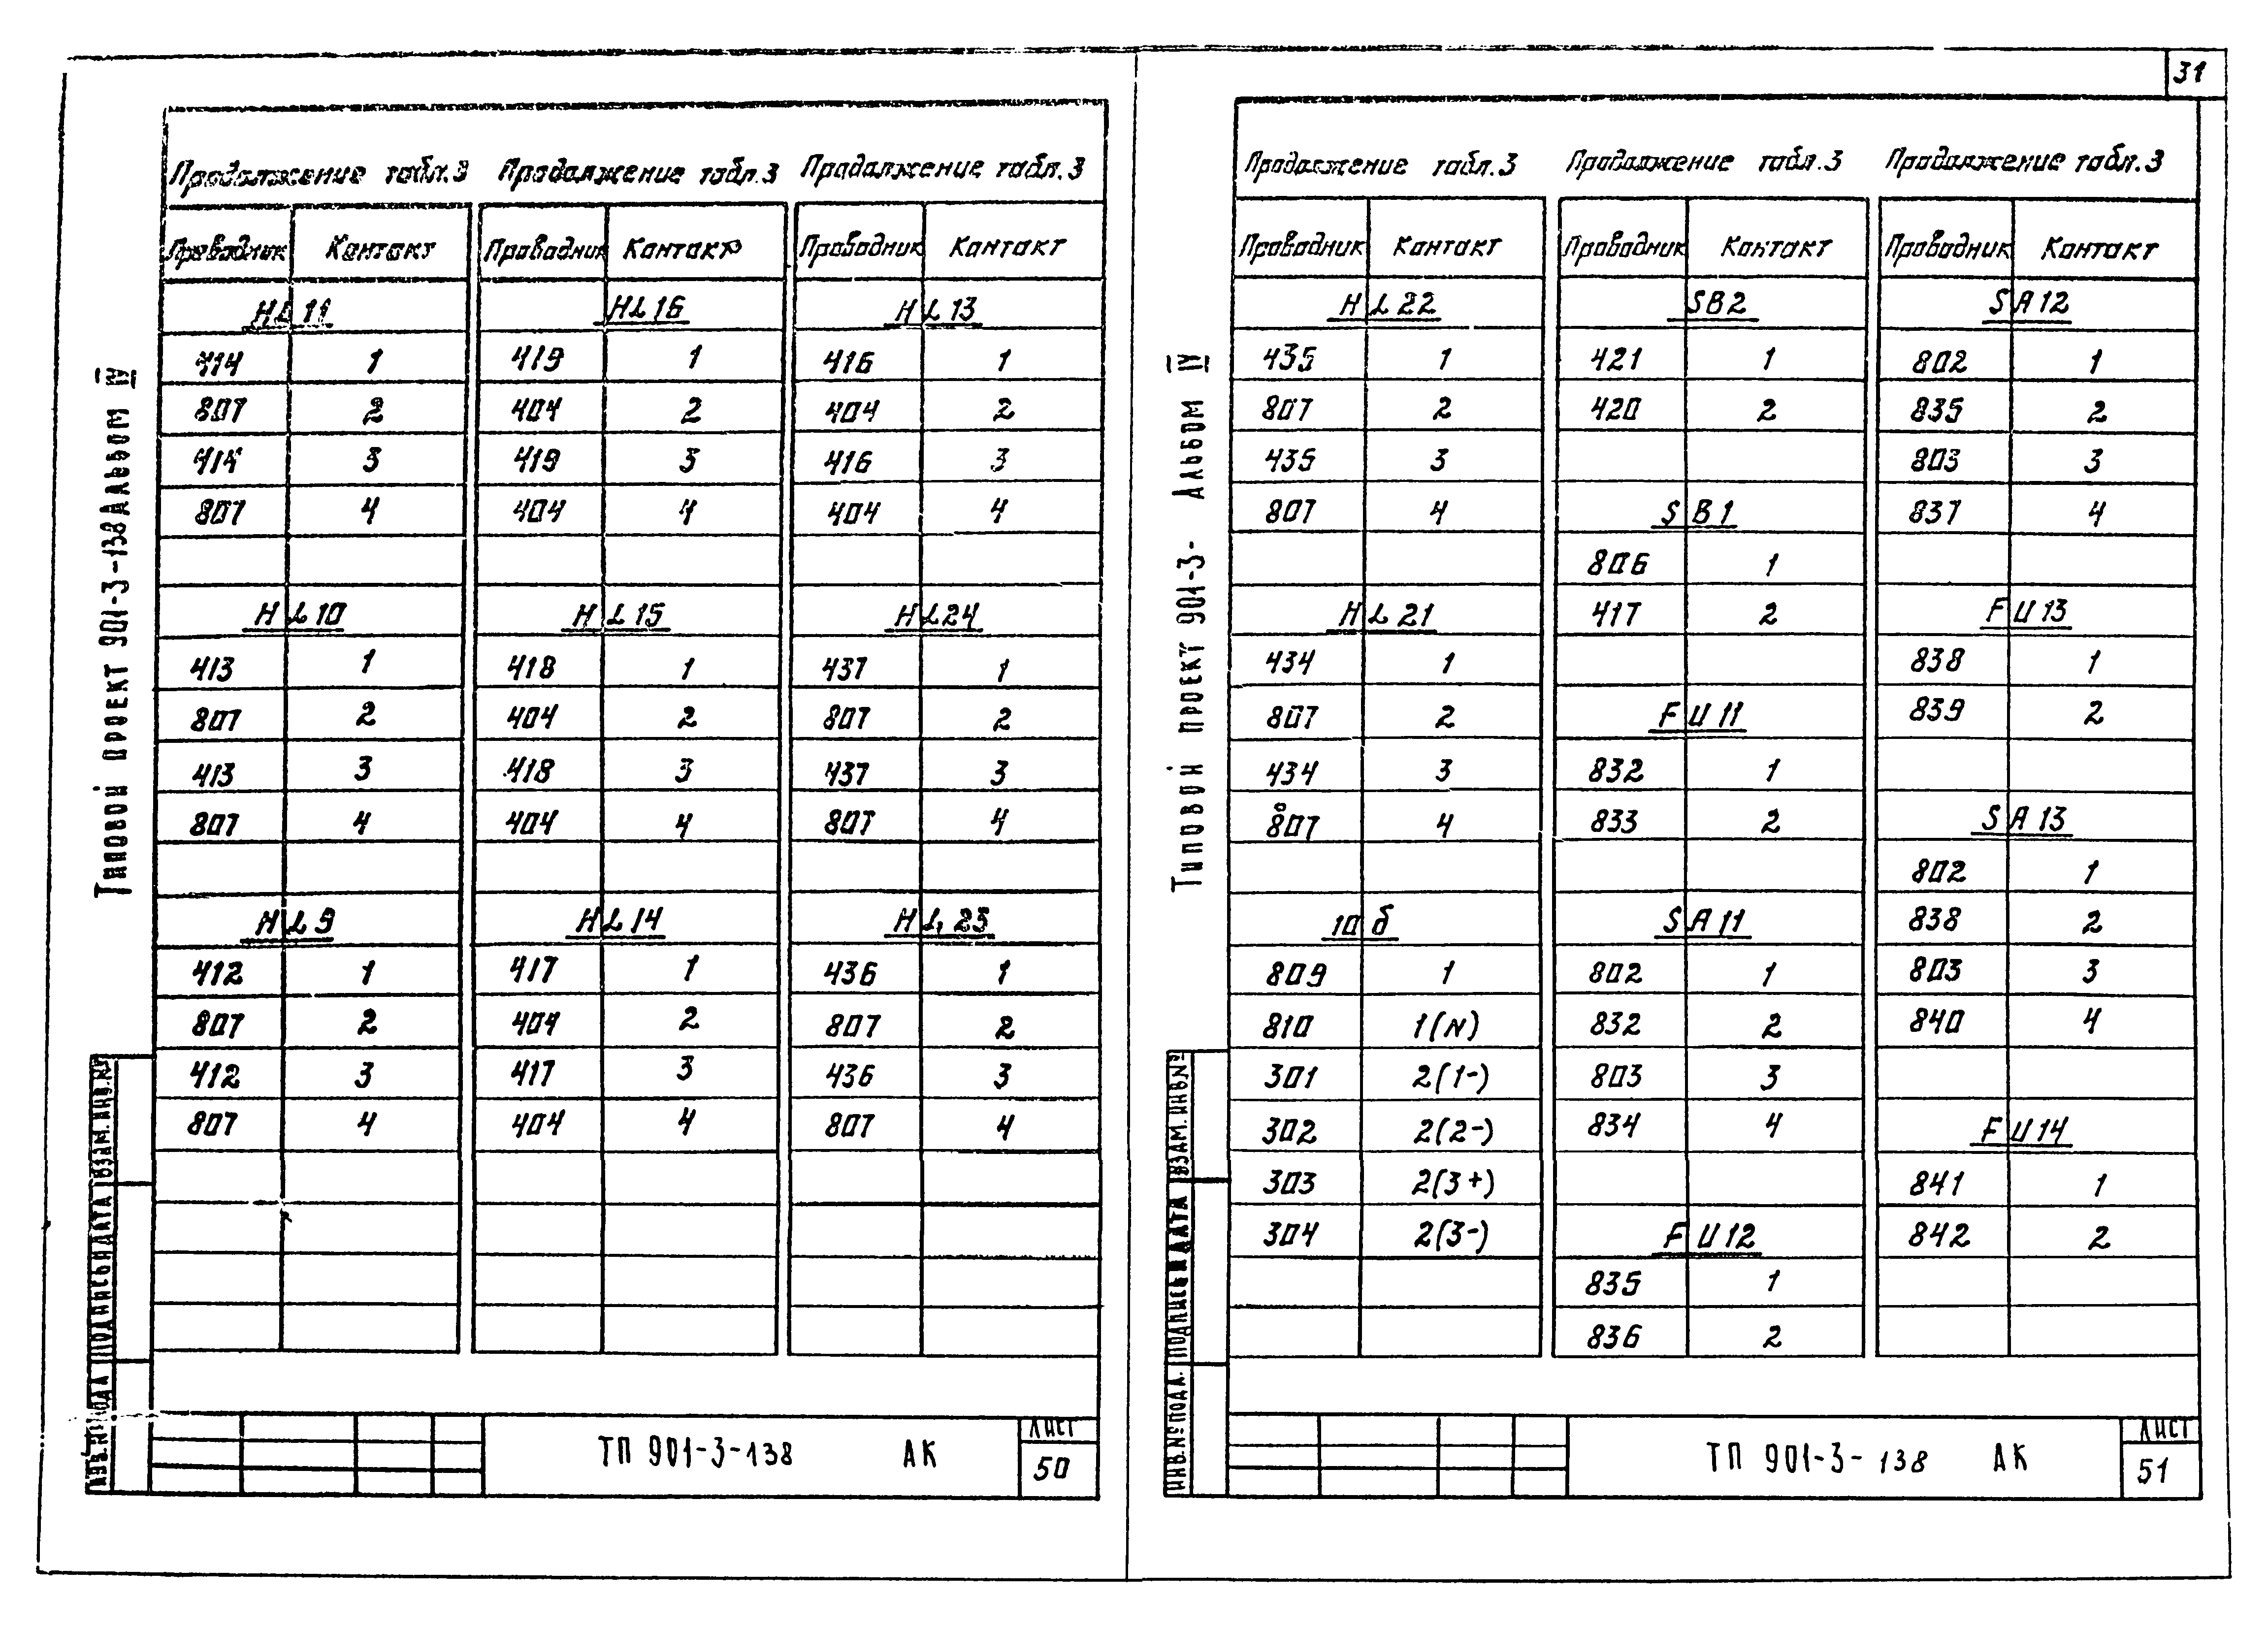 31
Типовой проект 901-3-138 Альбом IV
Продолжение табл.3
Проводник Контакт
HL11
414 1
807 2
414 3
807 4
HL10
413 1
807 2
413 3
807 4
HL9
412 1
807 2
412 3
807 4
Продолжение табл.3
Проводник Контакт
HL16
419 1
404 2
419 3
404 4
HL15
418 1
404 2
418 3
404 4
HL14
417 1
404 2
417 3
404 4
Продолжение табл.3
Проводник Контакт
HL13
416 1
404 2
416 3
404 4
HL24
437 1
807 2
437 3
807 4
HL23
436 1
807 2
436 3
807 4
ВЗАМ.ИНВ.№
ПОДПИСЬ И ДАТА
ИНВ.№ ПОДЛ
ТП 901-3-138 АК
ЛИСТ
50
Типовой проект 901-3- Альбом IV
Продолжение табл.3
Проводник Контакт
HL22
435 1
807 2
435 3
807 4
HL21
434 1
807 2
434 3
807 4
10б
809 1
810 1(N)
301 2(1-)
302 2(2-)
303 2(3+)
304 2(3-)
Продолжение табл.3
Проводник Контакт
SB2
421 1
420 2
SB1
806 1
417 2
FU11
832 1
833 2
SA11
802 1
832 2
803 3
834 4
FU12
835 1
836 2
Продолжение табл.3
Проводник Контакт
SA12
802 1
835 2
803 3
837 4
FU13
838 1
839 2
SA13
802 1
838 2
803 3
840 4
FU14
841 1
842 2
ВЗАМ.ИНВ.№
ПОДПИСЬ И ДАТА
ИНВ.№ ПОДЛ.
ТП 901-3-138 АК
ЛИСТ
51